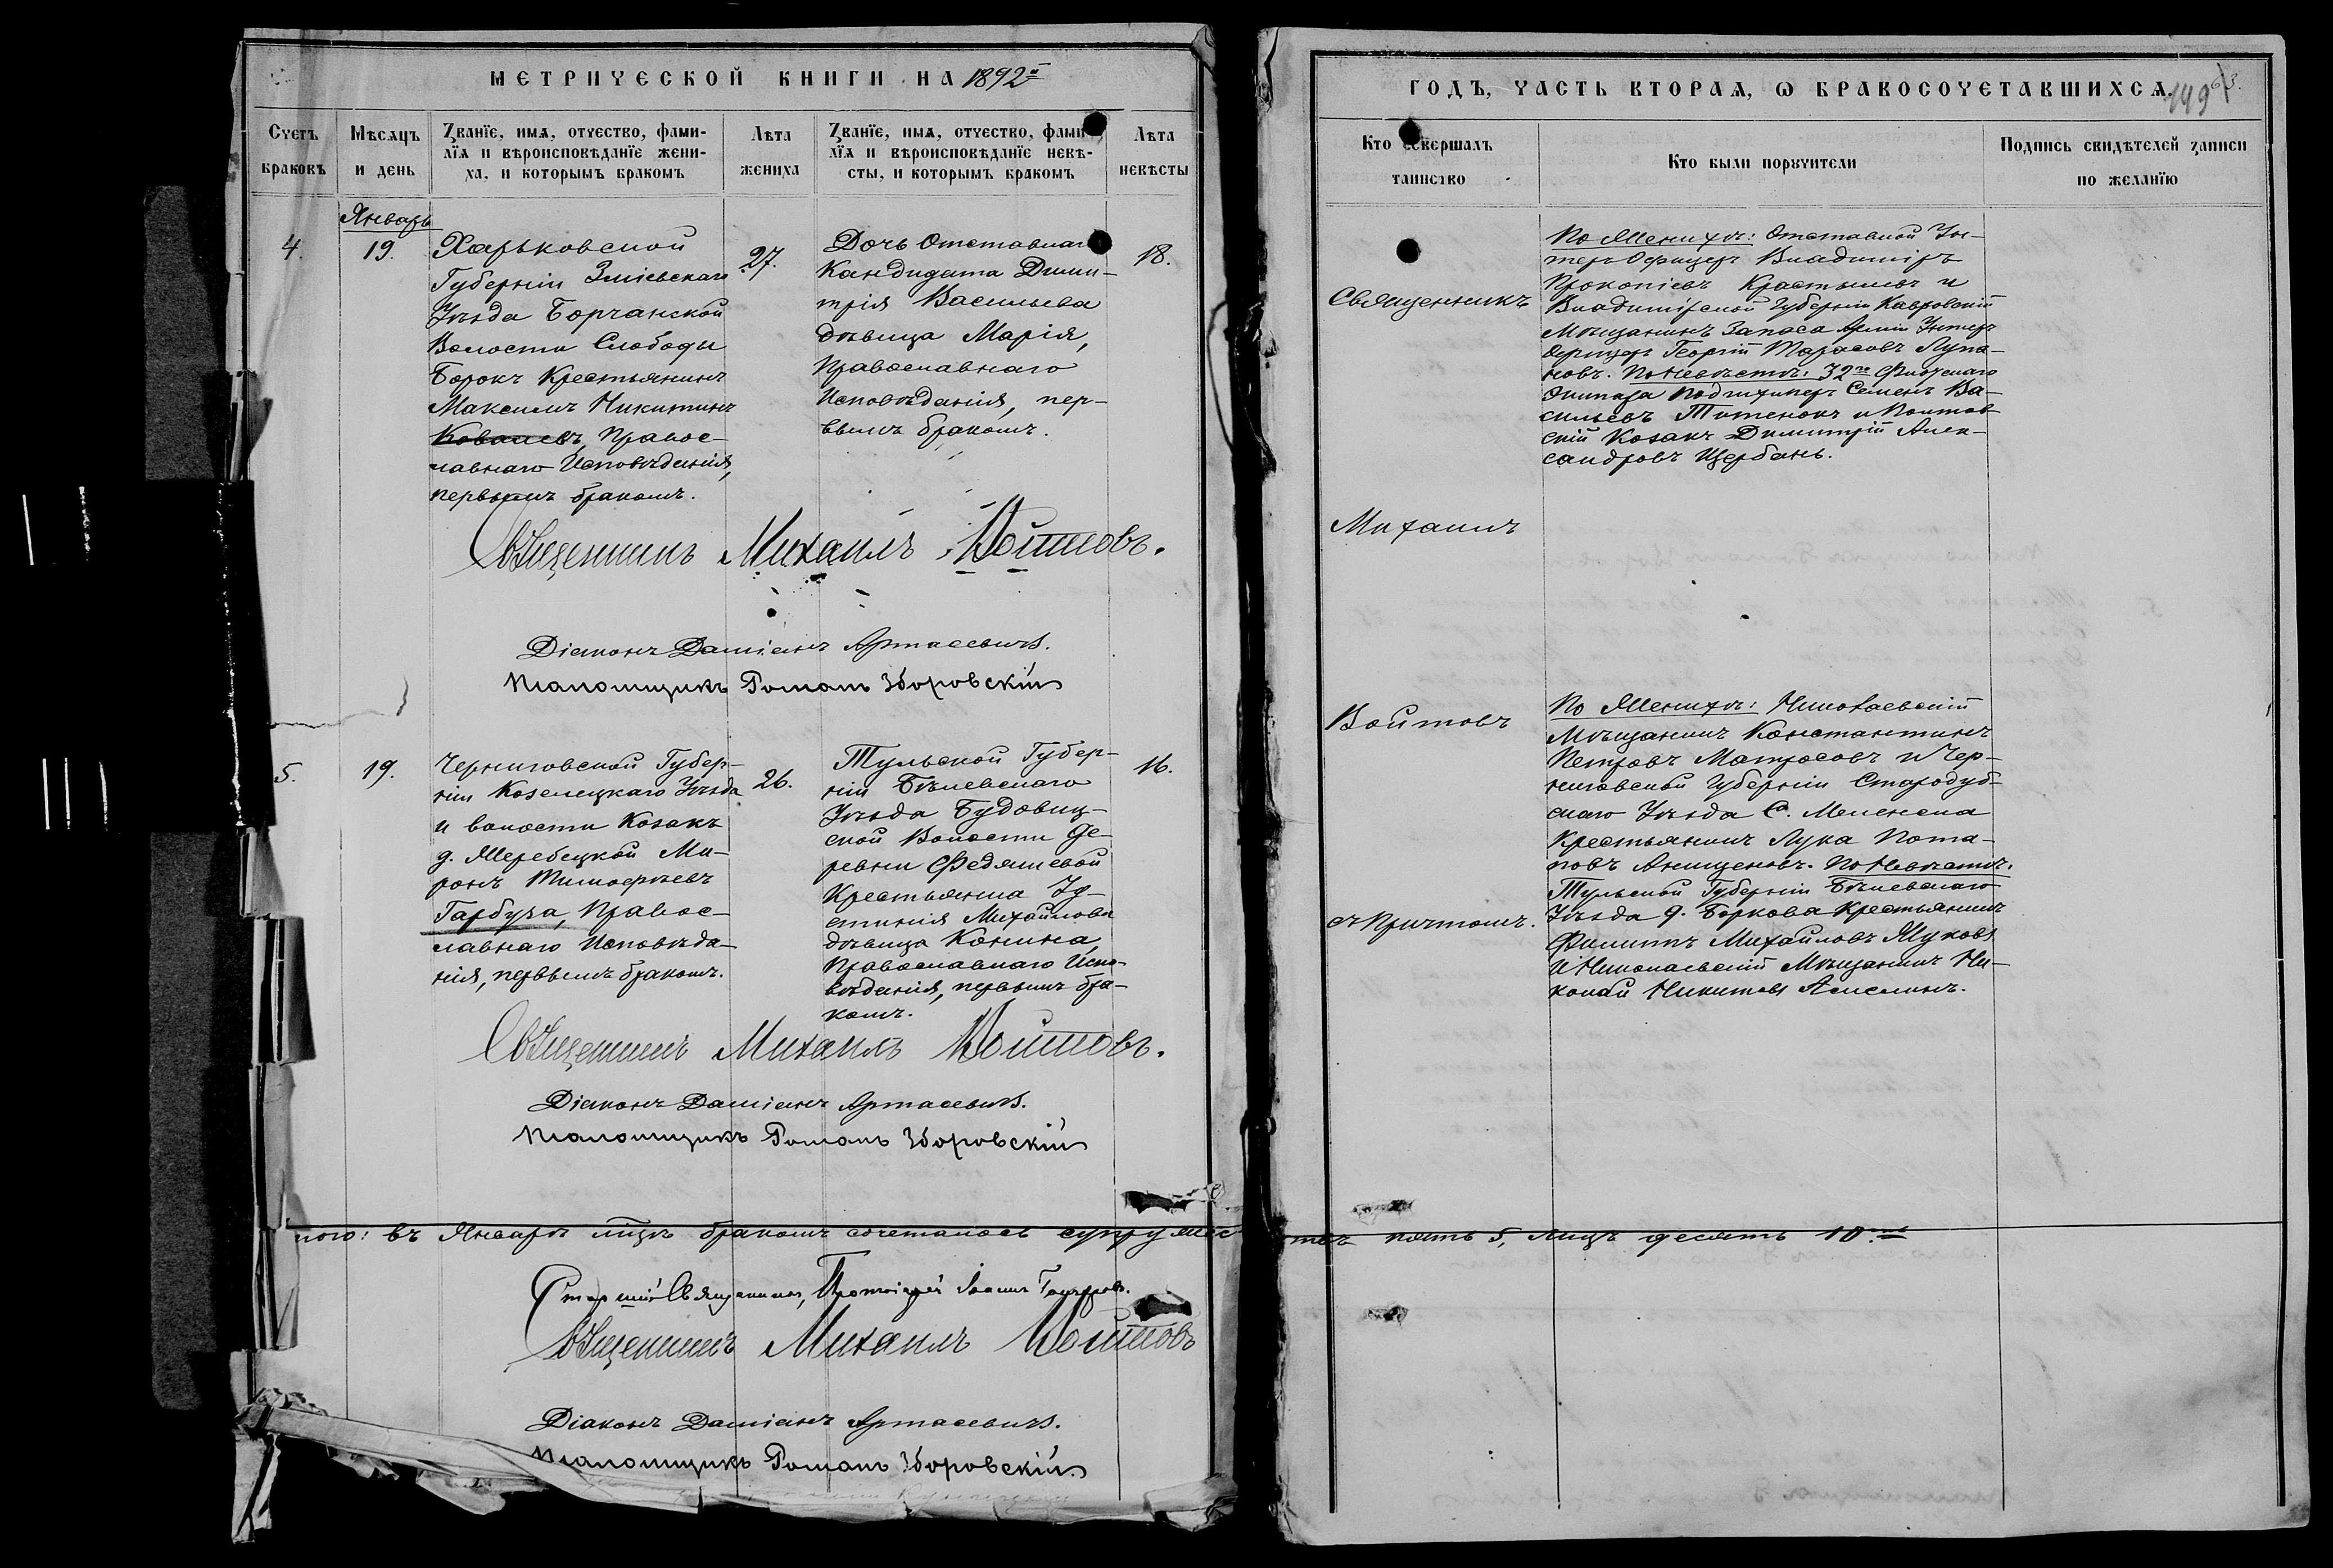 МЕТРИЧЕСКОЙ КНИГИ НА 1892й
Счетъ браковъ
Мѣсяцъ и день
Званїе, имѧ, отчество, фами-
лїѧ и вѣроисповѣданїе жени-
ха, и которымъ бракомъ
Лѣта жениха
Званїе, имѧ, отчество, фами
лїѧ и вѣроисповѣданїе невѣ-
сты, и которымъ бракомъ
Лѣта невѣсты
Январь
4.
19.
Харьковской
Губерніи Зміевскаго
Уѣзда Борчанской
Волости Слободы
Борокъ Крестьянинъ
Максимъ Никитинъ
Ковалевъ, Правос-
лавнаго Исповѣданія,
первымъ бракомъ.
27.
Дочь Отставнаго
Кандидата Дими-
трія Васильева
дѣвица Марія,
Православнаго
Исповѣданія, пер-
вымъ бракомъ.
18.
Священникъ Михаилъ Войтовъ.
Діаконъ Даміанъ Артасевичъ.
Псаломщикъ Романъ Зборовскій
5.
19.
Черниговской Губер-
ніи Козелецкаго Уѣзда
и волости Козакъ
д. Жеребецкой Ми-
ронъ Тимоѳѣевъ
Гарбуза, Правос-
лавнаго Исповѣда-
нія, первымъ бракомъ.
26.
Тульской Губер-
ніи Бѣлевскаго
Уѣзда Будовиц-
ской Волости Де-
ревни Федяшевой
Крестьянка Іу-
стинія Михайлова
дѣвица Конина,
Православнаго Испо-
вѣданія, первымъ бра-
комъ.
16.
Священникъ Михаилъ Войтовъ.
Діаконъ Даміанъ Артасевичъ.
Псаломщикъ Романъ Зборовскій
того: въ Январѣ мѣсяцѣ бракомъ сочеталось супружес
Старшій Священникъ, Протоіерей Іоаннъ
Священникъ Михаилъ Войтовъ
Діаконъ Даміанъ Артасевичъ.
Псаломщикъ Романъ Зборовскій
ГОДЪ, ЧАСТЬ ВТОРАѦ, Ѡ БРАКОСОЧЕТАВШИХСѦ.
149
63.
Кто совершалъ таинство
Кто были порꙋчители
Подпись свидѣтелей записи
по желанїю
Священникъ
Михаилъ
Войтовъ
съ Причтомъ.
По Женихѣ: Отставной Ун-
теръ Офицеръ Владиміръ
Прокопіевъ Крастылевъ и
Владимірской Губерніи Ковровскій
Мѣщанинъ Запаса Арміи Унтеръ
Офицеръ Георгій Тарасовъ Лупа-
новъ. По Невѣстѣ: 32го Флотскаго
Экипажа Подшхиперъ Семенъ Ва-
сильевъ Титенокъ и Полтав-
скій Козакъ Димитрій Алек-
сандровъ Щербань.
По Женихѣ: Николаевскій
Мѣщанинъ Константинъ
Петровъ Матросовъ и Чер-
ниговской Губерніи Стародуб-
скаго Уѣзда С. Меленска
Крестьянинъ Лука Пота-
повъ Анищенковъ. По Невѣстѣ:
Тульской Губерніи Бѣлевскаго
Уѣзда д. Боркова Крестьянинъ
Филиппъ Михайловъ Жуковъ
и Николаевскій Мѣщанинъ Ни-
колай Никитовъ Амелинъ.
твъ пять 5, лицъ десять 10.